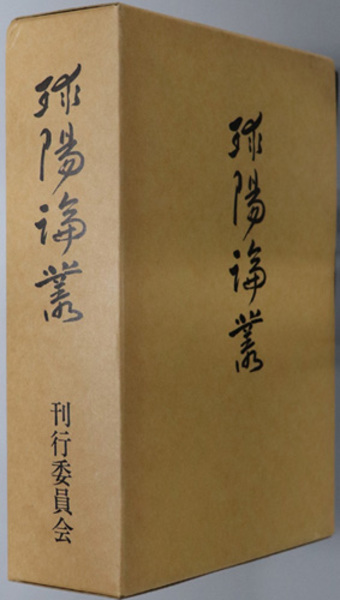 球陽論叢
刊行委員会
球陽論叢